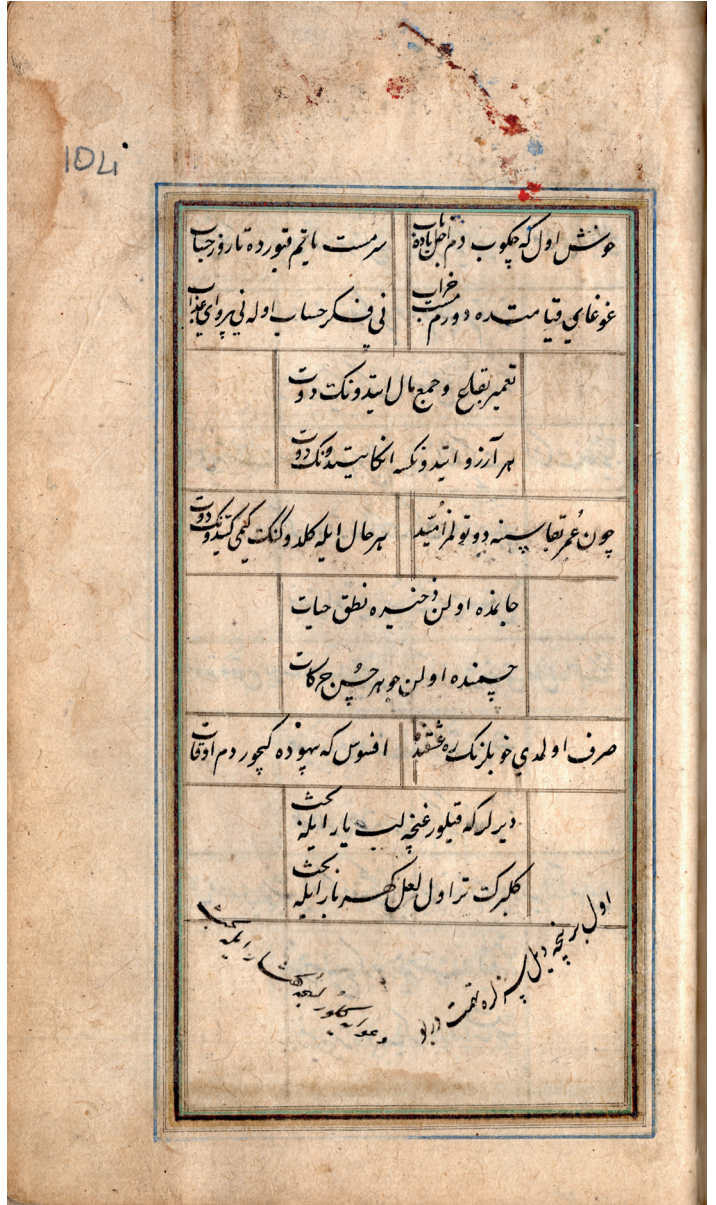 104
خوش اول که چکوب دم اجل باده ناب
سرمست یاتم قبورده تا روز حساب
غوغای قیامتده دورم مست خراب
نی فکر حساب اوله نی پروای عذاب
تعمیر بقاع و جمع مال ایتدونک دوت
هر آرزو ایتدونکسه انکا یتدونک دوت
چون عمر بقاسینه دوتولمز امید
هر حال ایله کلدونک کیمی کیتدونک دوت
جانمده اولن ذخیره نطق حیات
جسمنده اولن جوهر حسن حرکات
صرف اولمدی خوبلرنک ره عشقنده
افسوس که بیهوده کیچوردم اوقات
دیرلر که قیلور غنچه لب یار ایله بحث
کلبرک تر اول لعل کهربار ایله بحث
اول بر نچه دیل